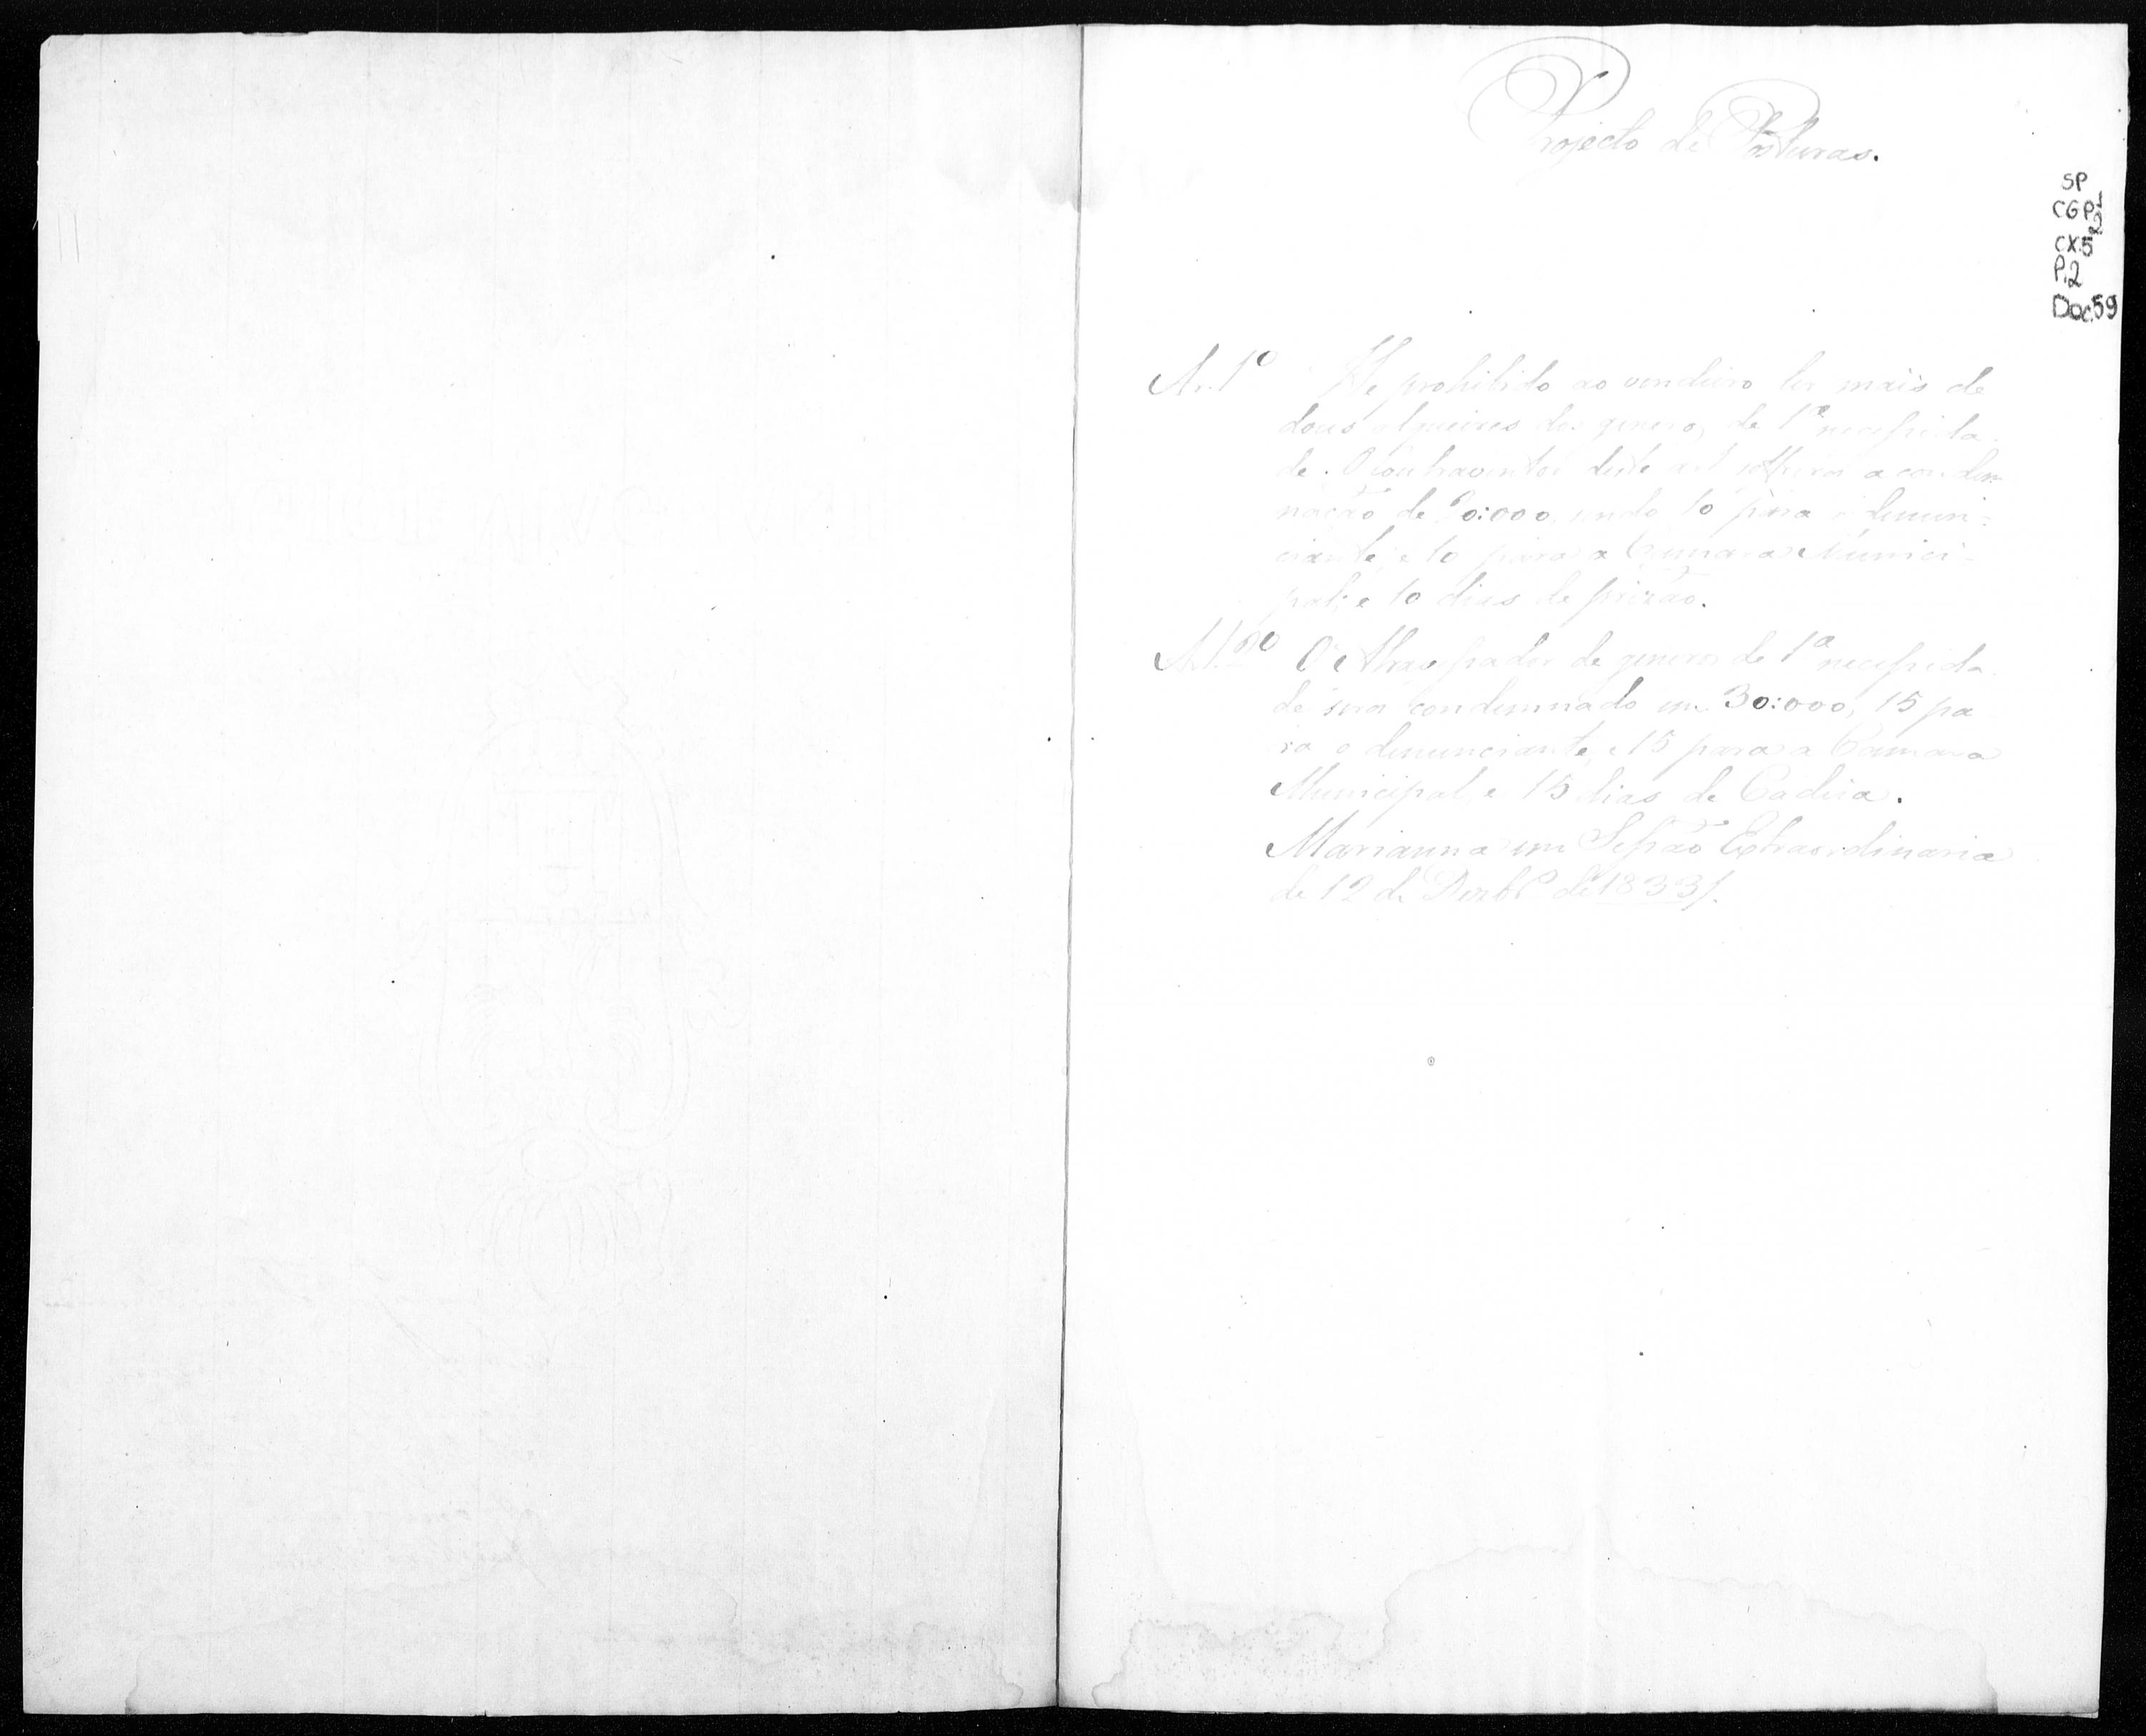 Projecto de Posturas.
SP
CGP
CX5
P.2
Doc.59
Art. 1º He prohibido ao vendeiro ter mais de
dous alqueires dos generos de 1ª necessida
de. O contraventor deste art. soffrerá a condem
nação de 20:000, sendo 10 para o denun=
ciante, e 10 para a Camara Munici=
pal; e 10 dias de prizão.
Art. O Atravessador de generos de 1ª necessida
de será condemnado em 30:000, 15 pa
ra o denunciante, e 15 para a Camara
Municipal, e 15 dias de Cadeia.
Marianna em Sessão Extraordinaria
de 12 de Dezbrº de 1833/.